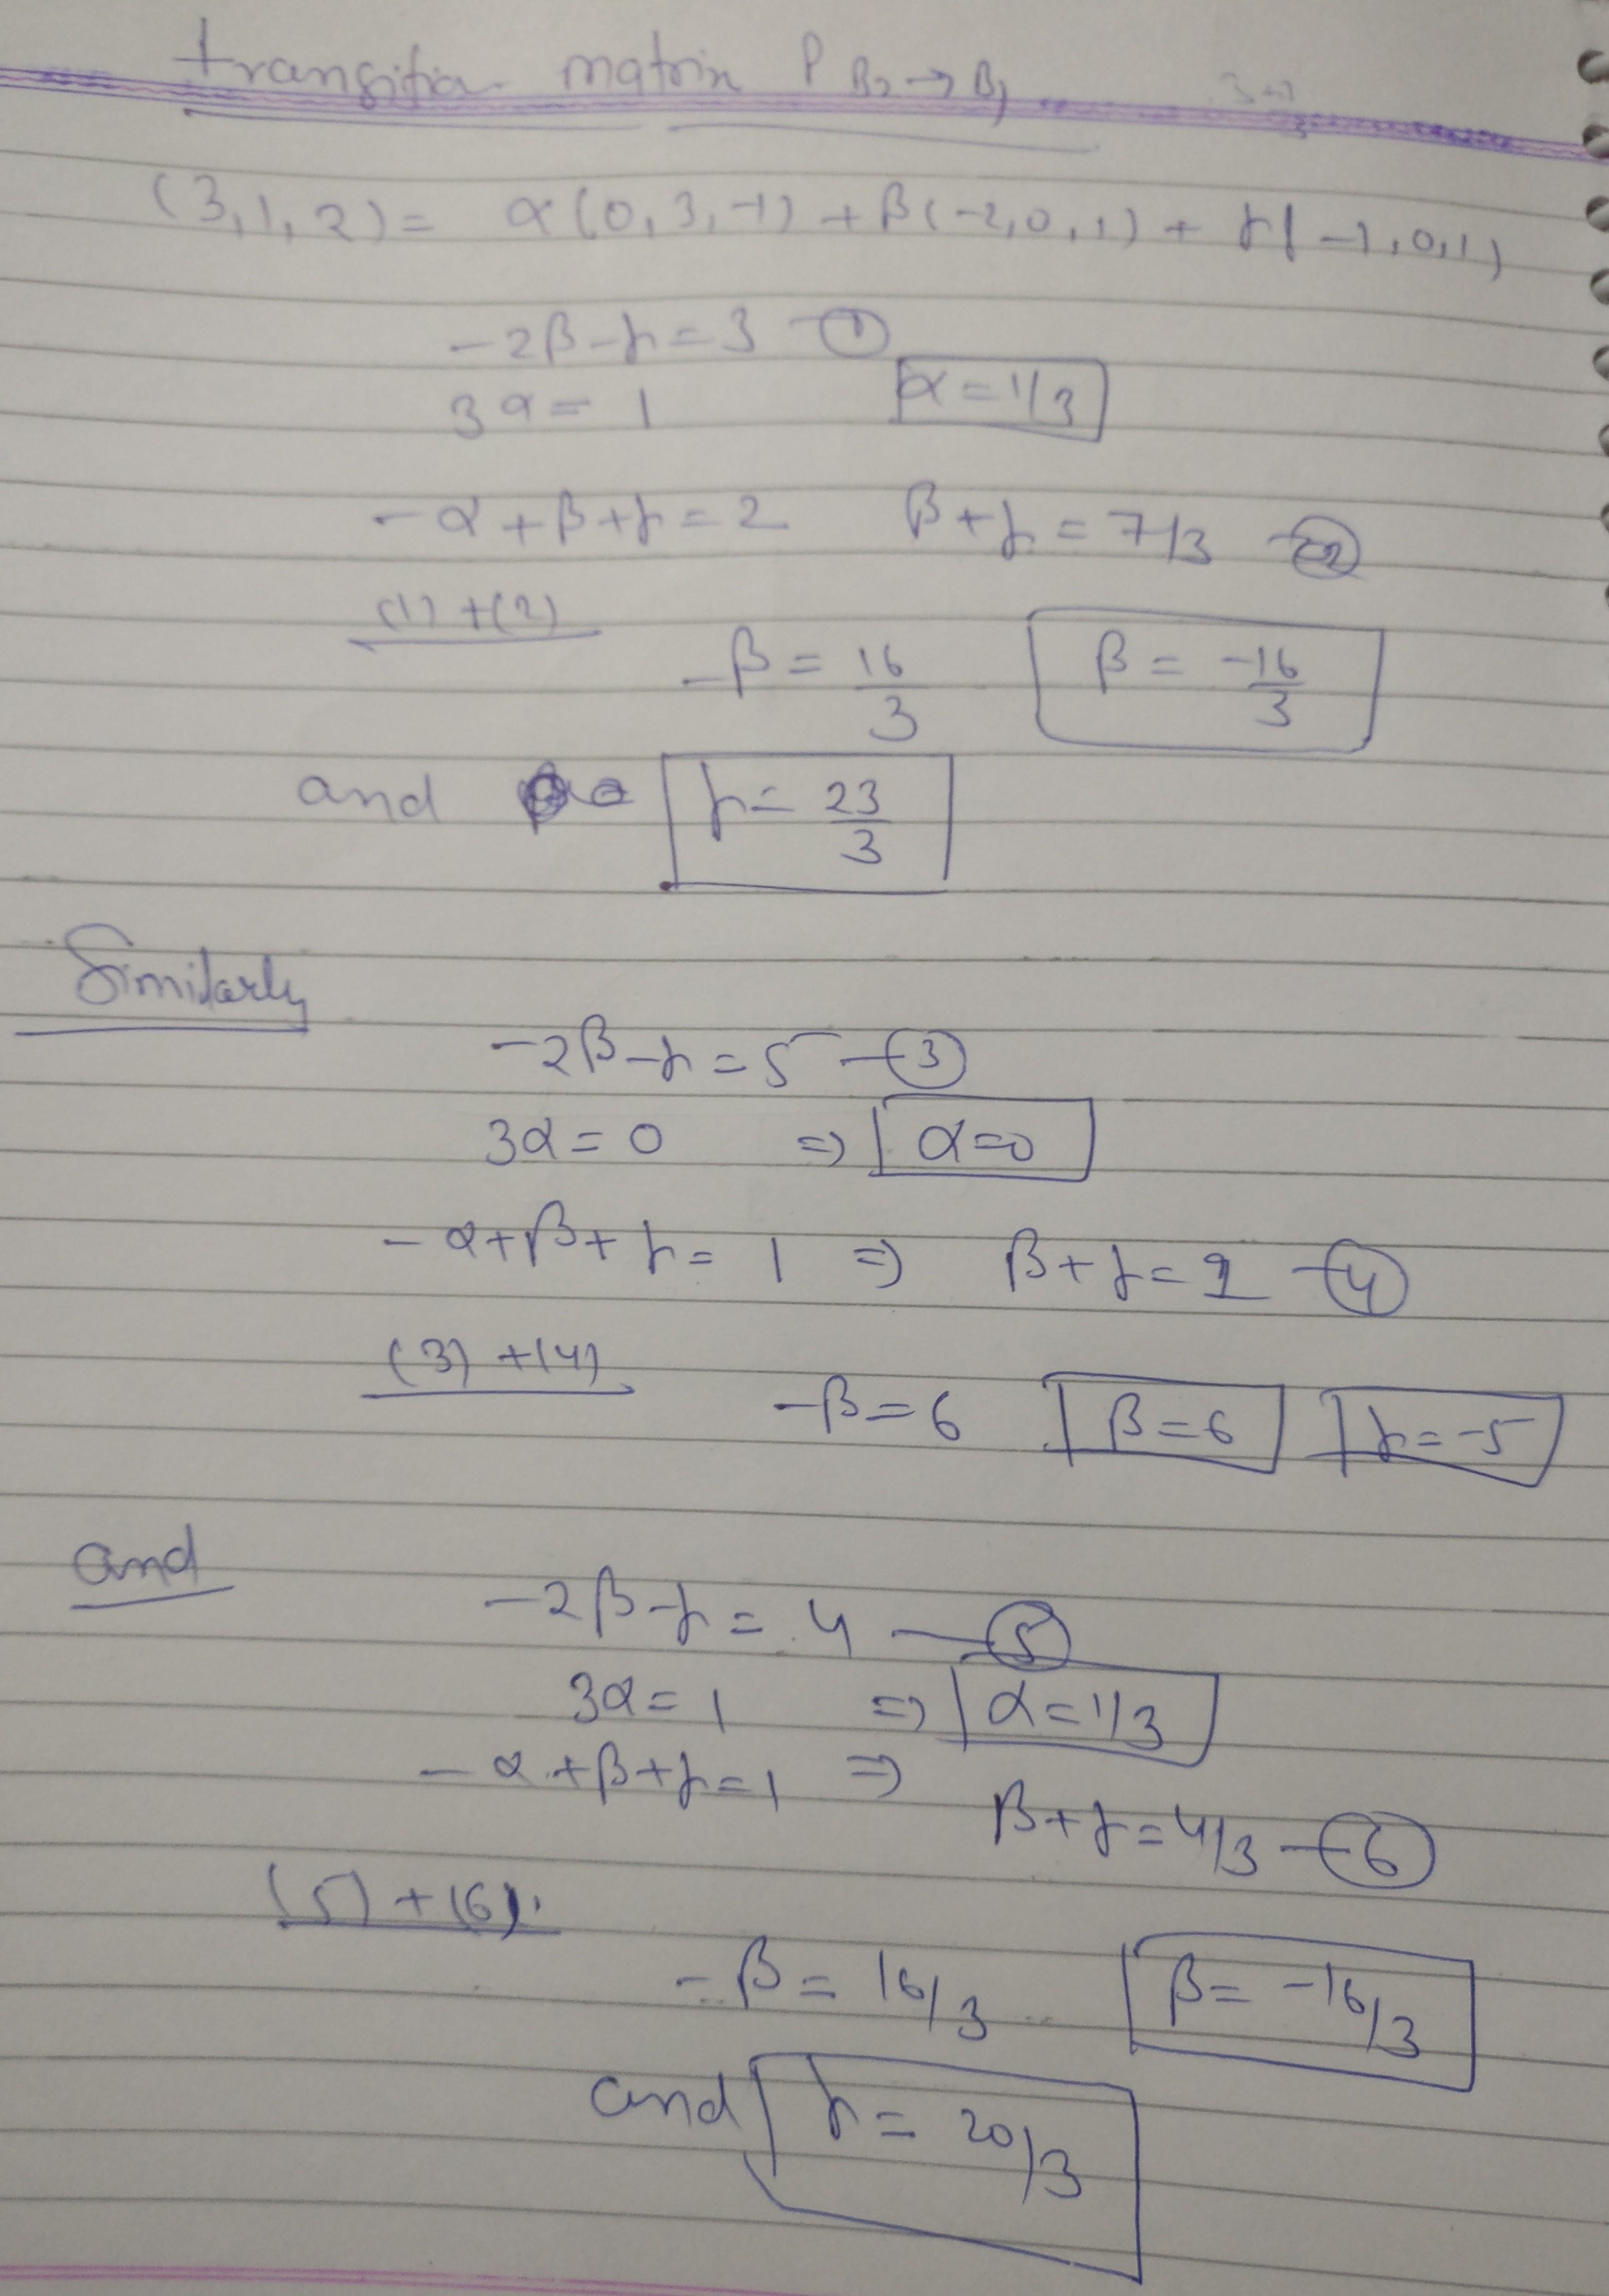 transition matrix P B2→B1
(3,1,2) = α(0,3,-1) + β(-2,0,1) + γ(-1,0,1)
-2β-γ=3 -①
3α=1 α=1/3
-α+β+γ=2 β+γ=7/3 -②
(1)+(2)
-β = 16/3 β = -16/3
and γ = 23/3
Similarly
-2β-γ=5 -③
3α=0 => α=0
-α+β+γ=1 => β+γ=1 -④
(3)+(4)
-β=6 β=6 γ=-5
and
-2β-γ=4 -⑤
3α=1 => α=1/3
-α+β+γ=1 =>
β+γ=4/3 -⑥
(5)+(6)
-β=16/3 β=-16/3
and γ=20/3